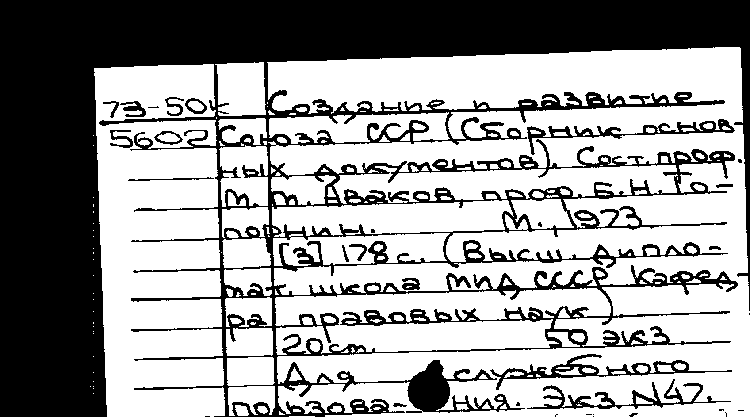 73-50к Создание и развитие
5602 Союза ССР. (Сборник основ-
ных документов). Сост. проф.
М. М. Аваков, проф. Б. Н. То-
порнин. М., 1973.
[3], 178 с. (Высш. дипло-
мат. школа МИД СССР Кафед-
ра правовых наук)
20 см. 50 экз.
Для служебного
пользова- ния. Экз. N47.